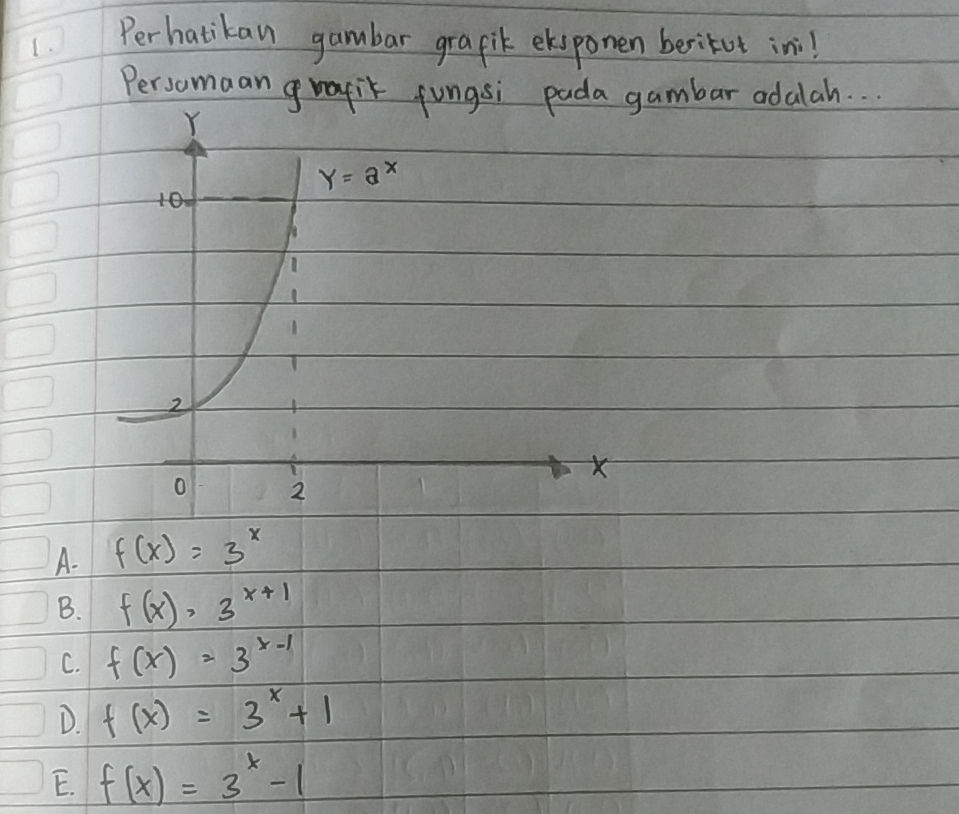 1. Perhatikan gambar grafik eksponen berikut ini!
Persamaan grafik fungsi pada gambar adalah...
Y
Y = a^x
10
2
0
2
X
A. f(x) = 3^x
B. f(x) = 3^(x+1)
C. f(x) = 3^(x-1)
D. f(x) = 3^x + 1
E. f(x) = 3^x - 1